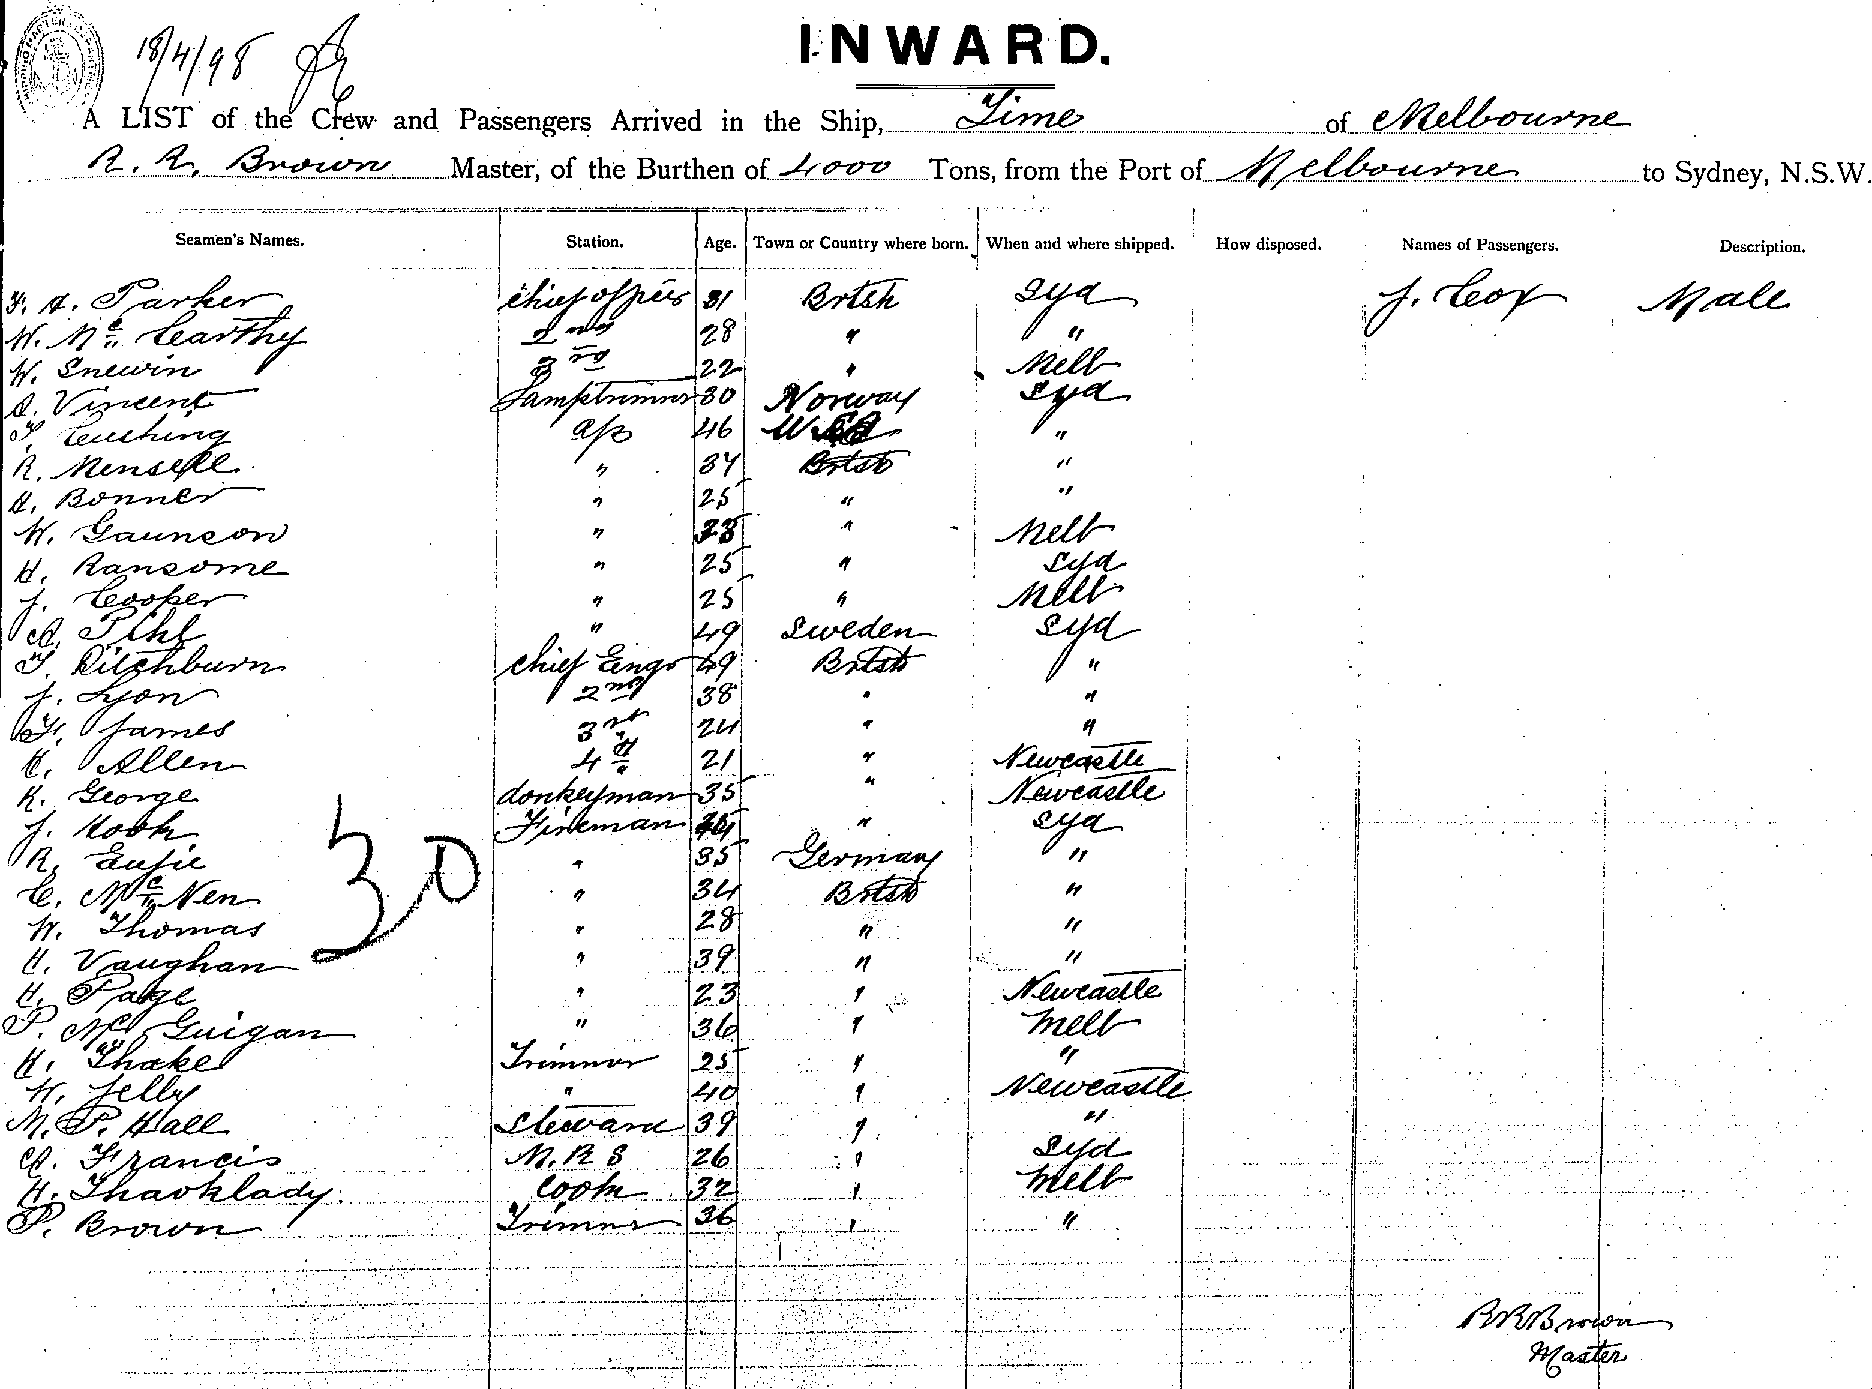 18/4/98
INWARD.
A LIST of the Crew and Passengers Arrived in the Ship, Time of Melbourne
R. R. Brown Master, of the Burthen of 4000 Tons, from the Port of Melbourne to Sydney, N.S.W.
Seamen's Names. Station. Age. Town or Country where born. When and where shipped. How disposed. Names of Passengers. Description.
F. A. Parker chief officer 31 Brtsh Syd J. Cox Male
W. Mc Cearthy 2nd 28 " "
W. Snewin 3rd 22 " Melb
A. Vincent Lamptrimmer 30 Norway Syd
T. Cushing a/b 46 "
R. Mensell " 37 Brtsh "
H. Bonner " 25 " "
W. Gaunson " 23 " Melb
H. Ransome " 25 " Syd
J. Cooper " 25 " Melb
A. Pihl " 49 Sweden Syd
T. Ditchburn chief Engr 49 Brtsh "
J. Lyon 2nd 38 " "
F. James 3rd 24 " "
C. Allen 4th 21 " Newcastle
K. George donkeyman 35 " Newcastle
J. Hook Fireman " Syd
R. 35 Germany "
C. Mc Nen " 34 Brtsh "
W. Thomas " 28 " "
H. Vaughan " 39 " "
30
H. Page " 23 " Newcastle
P. Mc Guigan " 36 " Melb
H. Thake Trimmer 25 " "
W. Jelly " 40 " Newcastle
M. P. Hall Steward 39 " "
A. Francis M.R.S 26 " Syd
H. Thacklady. Cook 32 " Melb
P. Brown Trimmer 36 " "
R R Brown
Master